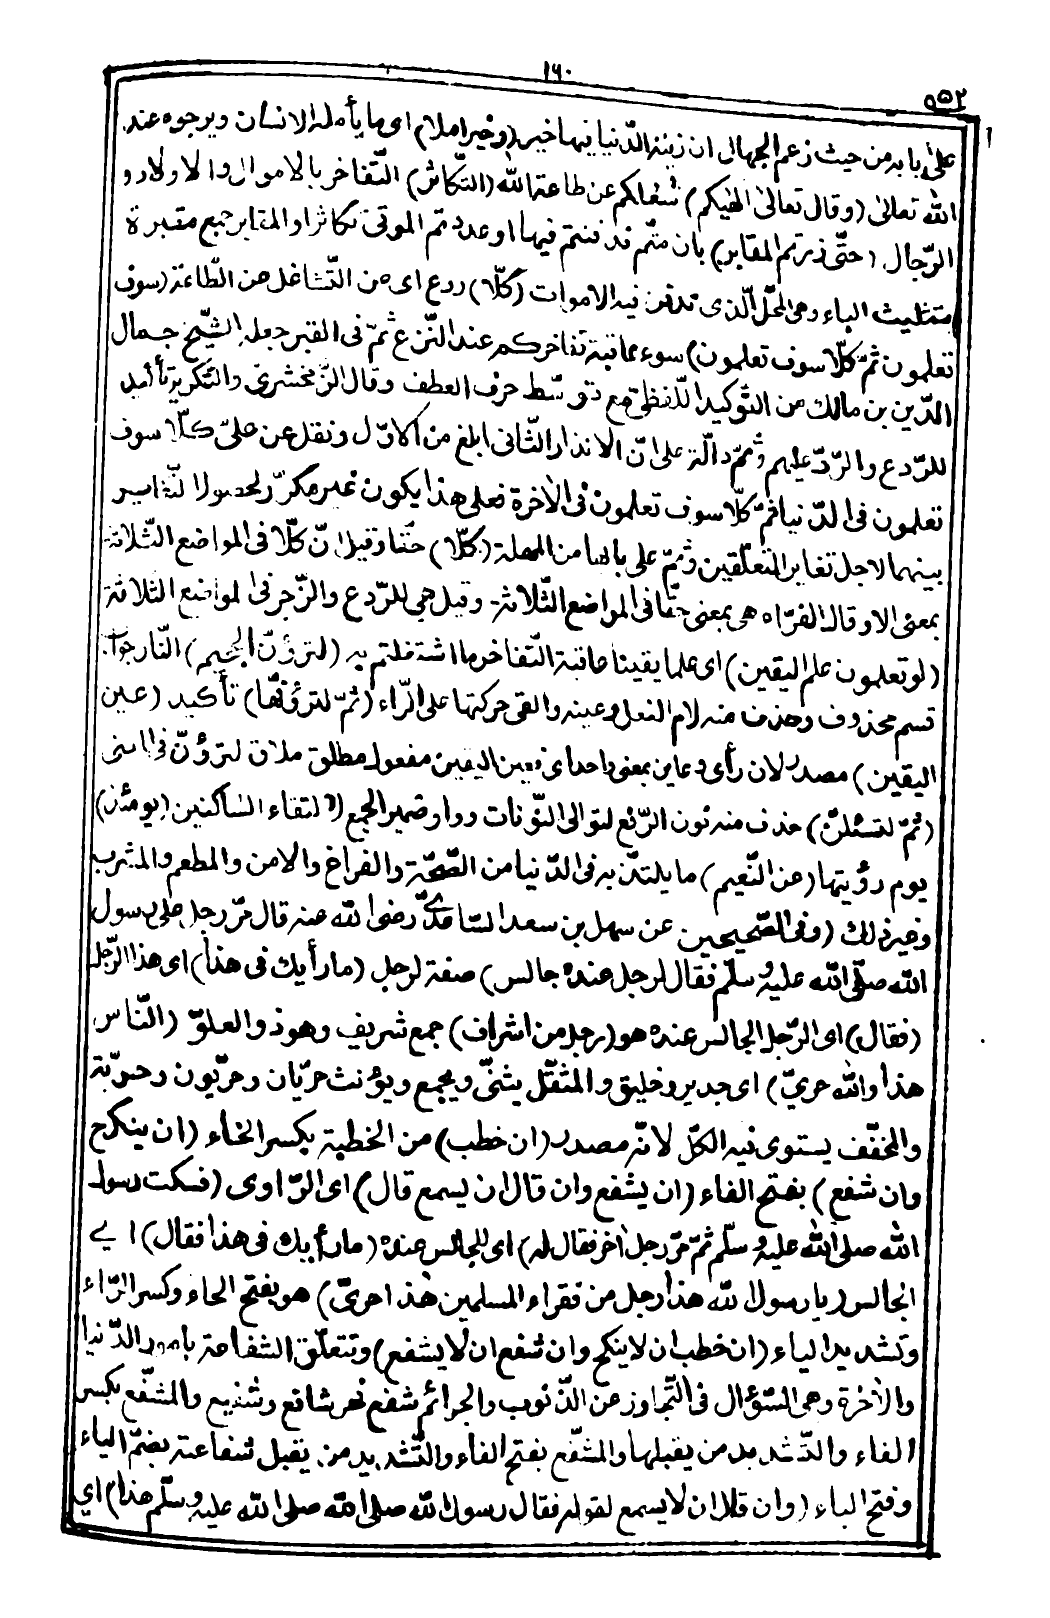 ١٦٠
٩٥٢
على بابه من حيث زعم الجهال ان زينة الدّنيا فيها خير (وخير املا) اى ما يأمله الانسان ويرجوه عند
الله تعالىٰ (وقال تعالىٰ الهٰيكم) شغلكم عن طاعة الله (التّكاثر) التّفاخر بالاموال والاولاد و
الرّجال (حتّى زرتم المقابر) بان متّم فدفنتم فيها او عددتم الموتى تكاثرا والمقابر جمع مقبرة
مثليث الباء وهى المحلّ الّذى تدفن فيه الاموات (كلّا) ردع اى عن التّشاغل عن الطّاعة (سوف
تعلمون ثمّ كلّا سوف تعلمون) سوء عاقبة تفاخركم عند النّزع ثمّ فى القبر جعله الشّيخ جمال
الدّين بن مالك من التّوكيد اللّفظىّ مع توسّط حرف العطف وقال الزّمخشرى والتّكرير تأكيد
للرّدع والرّدّ عليهم وثمّ دالّة على انّ الانذار الثّانى ابلغ من الاوّل ونقل عن علىّ كلّا سوف
تعلمون فى الدّنيا ثمّ كلّا سوف تعلمون فى الاٰخرة فعلى هذا يكون غير مكرّر لحصول التّغاير
بينهما لاجل تغاير المتعلّقين وثمّ على بابها من المهلة (كلّا) حقّا وقيل انّ كلّا فى المواضع الثّلاثة
بمعنى الا وقال الفرّاء هى بمعنى حقّا فى المواضع الثّلاثة وقيل هى للرّدع والزّجر فى المواضع الثلاثة
(لو تعلمون علم اليقين) اى علما يقينا عاقبة التّفاخر ما اشتغلتم به (لترونّ الجحيم) النّار جواب
قسم محذوف وحذف منه لام الفعل وعينه والقى حركتها على الرّاء (ثمّ لترونّها) تأكيد (عين
اليقين) مصدر لان رأى وعاين بمعنى واحد اى عين اليقين مفعول مطلق ملاق لترونّ فى المعنى
(ثمّ لتسئلنّ) حذف منه نون الرّفع لتوالى النّونات وواو ضمير الجمع لالتقاء السّاكنين (يومئذ)
يوم رؤيتها (عن النّعيم) ما يلتذّ به فى الدّنيا من الصّحّة والفراغ والامن والمطعم والمشرب
وغير ذلك (وفى الصّحيحين عن سهل بن سعد السّاعدىّ رضى الله عنه قال مرّ رجل على رسول
الله صلّى الله عليه وسلّم فقال لرجل عنده جالس) صفة لرجل (ما رأيك فى هذا) اى هذا الرّجل
(فقال) اى الرّجل الجالس عنده هو (رجل من اشراف) جمع شريف وهو ذو العلوّ (النّاس
هذا والله حرىّ) اى جدير وخليق والمثقّل يثنّى ويجمع ويؤنث حرّيان وحرّيون وحرّية
والمخفّف يستوى فيه الكلّ لانّه مصدر (ان خطب) من الخطبة بكسر الخاء (ان ينكح
وان شفع) بفتح الفاء (ان يشفع وان قال ان يسمع قال) اى الرّاوى (فسكت رسول
الله صلى الله عليه وسلّم ثمّ مرّ رجل اٰخر فقال له) اى للجالس عنده (ما رأيك فى هذا فقال) اى
الجالس (يا رسول الله هذا رجل من فقراء المسلمين هٰذا حرىّ) هو بفتح الحاء وكسر الرّاء
وتشديد الياء (ان خطب ان لا ينكح وان شفع ان لا يشفع) وتتعلّق الشفاعة بامور الدّنيا
والاٰخرة وهى السّؤال فى التّجاوز عن الذّنوب والجرائم شفع فهو شافع وشفيع والمشفّع بكسر
الفاء والتّشديد من يقبلها والمشفّع بفتح الفاء والتّشديد من يقبل شفاعته بضمّ الياء
وفتح الباء (وان قال ان لا يسمع لقوله فقال رسول الله صلى الله صلى الله عليه وسلّم هذا) اى